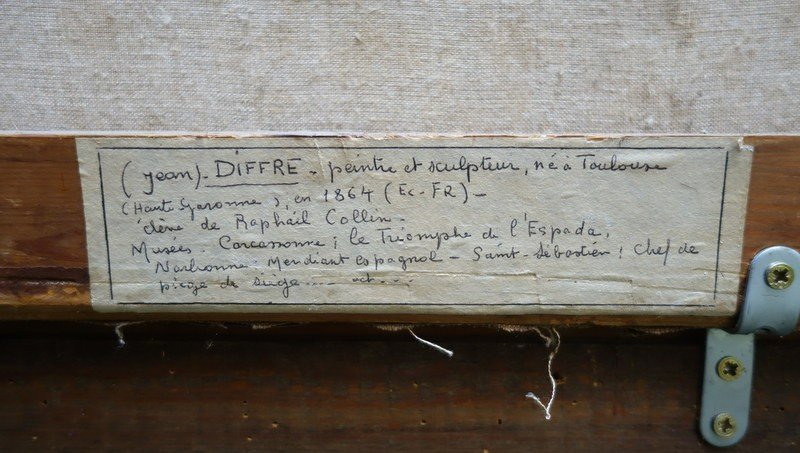 (Jean). DIFFRE - peintre et sculpteur, né à Toulouse
(Haute Garonne), en 1864 (Ec. FR) -
élève de Raphaël Collin.
Musées. Carcassonne; le Triomphe de l'Espada,
Narbonne. Mendiant espagnol - Saint-Sébastien; Chef de
pièce de siège....